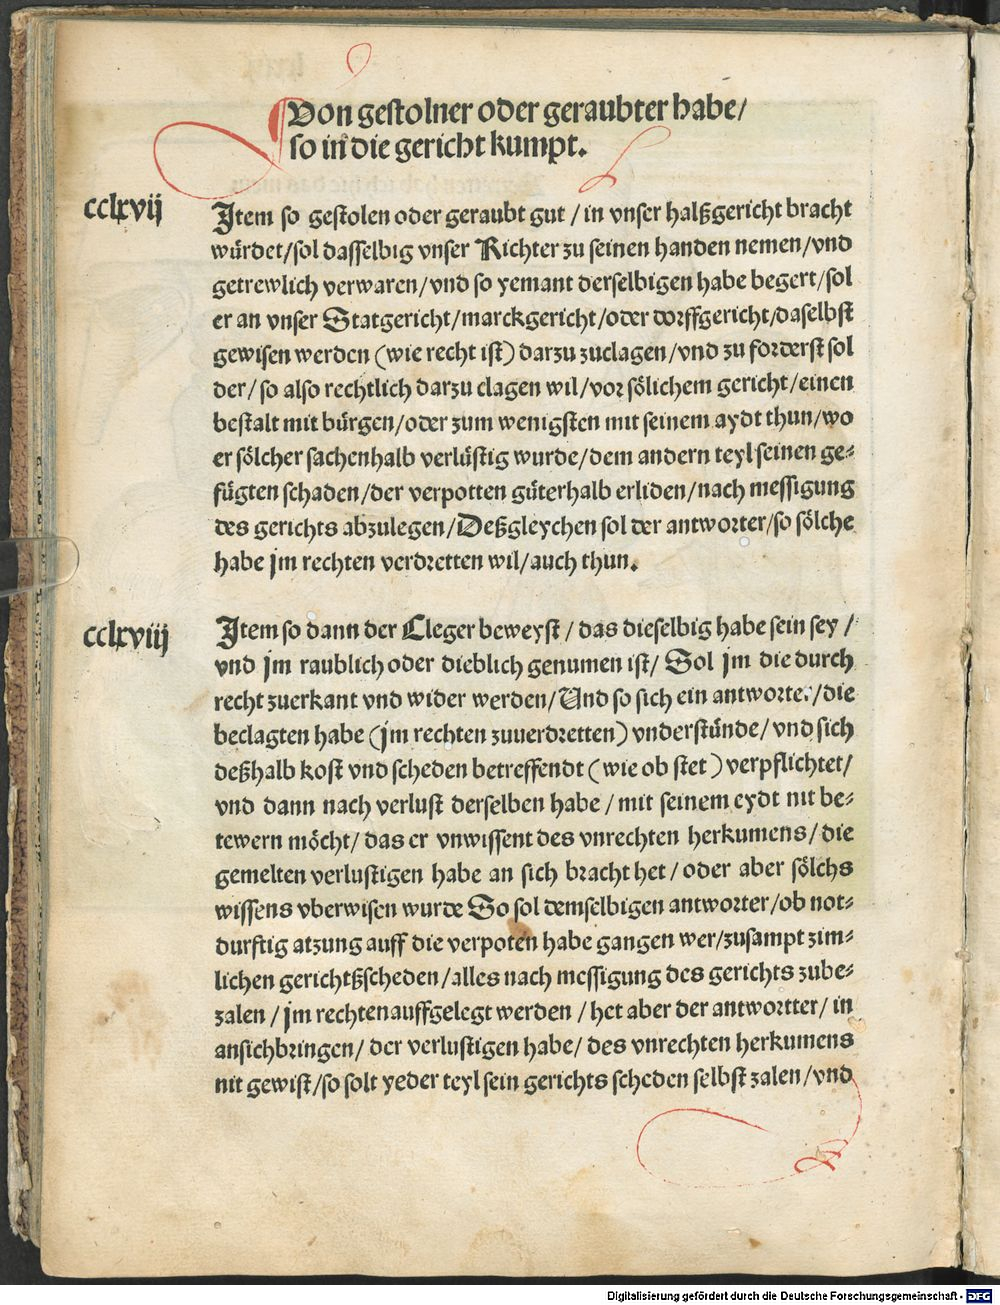 Von gestolner oder geraubter habe/
so in die gericht kumpt.
cclxvij
Item so gestolen oder geraubt gut / in vnser halßgericht bracht
würdet/sol dasselbig vnser Richter zu seinen handen nemen/vnd
getrewlich verwaren/vnd so yemant derselbigen habe begert/sol
er an vnser Statgericht/marckgericht/oder dorffgericht/daselbst
gewisen werden (wie recht ist) darzu zuclagen/vnd zu forderst sol
der/so also rechtlich darzu clagen wil/vor sölichem gericht/einen
bestalt mit bürgen/oder zum wenigsten mit seinem aydt thun/wo
er sölcher sachenhalb verlüstig wurde/dem andern teyl seinen ge-
fügten schaden/der verpotten güterhalb erliden/nach messigung
des gerichts abzulegen/Deßgleychen sol der antworter/so sölche
habe jm rechten verdretten wil/auch thun.
cclxviij
Item so dann der Cleger beweyst / das dieselbig habe sein sey /
vnd jm raublich oder dieblich genumen ist/ Sol jm die durch
recht zuerkant vnd wider werden/Und so sich ein antworter/die
beclagten habe (jm rechten zuuerdretten) vnderstünde/vnd sich
deßhalb kost vnd scheden betreffendt (wie ob stet) verpflichtet/
vnd dann nach verlust derselben habe / mit seinem eydt nit be-
tewern möcht/ das er vnwissent des vnrechten herkumens/ die
gemelten verlustigen habe an sich bracht het/ oder aber sölchs
wissens vberwisen wurde So sol demselbigen antworter/ob not-
durftig atzung auff die verpoten habe gangen wer/zusampt zim-
lichen gerichtßscheden/alles nach messigung des gerichts zube-
zalen / jm rechten auffgelegt werden / het aber der antwortter/ in
ansichbringen/ der verlustigen habe/ des vnrechten herkumens
nit gewist/so solt yeder teyl sein gerichts scheden selbst zalen/vnd
Digitalisierung gefördert durch die Deutsche Forschungsgemeinschaft - DFG